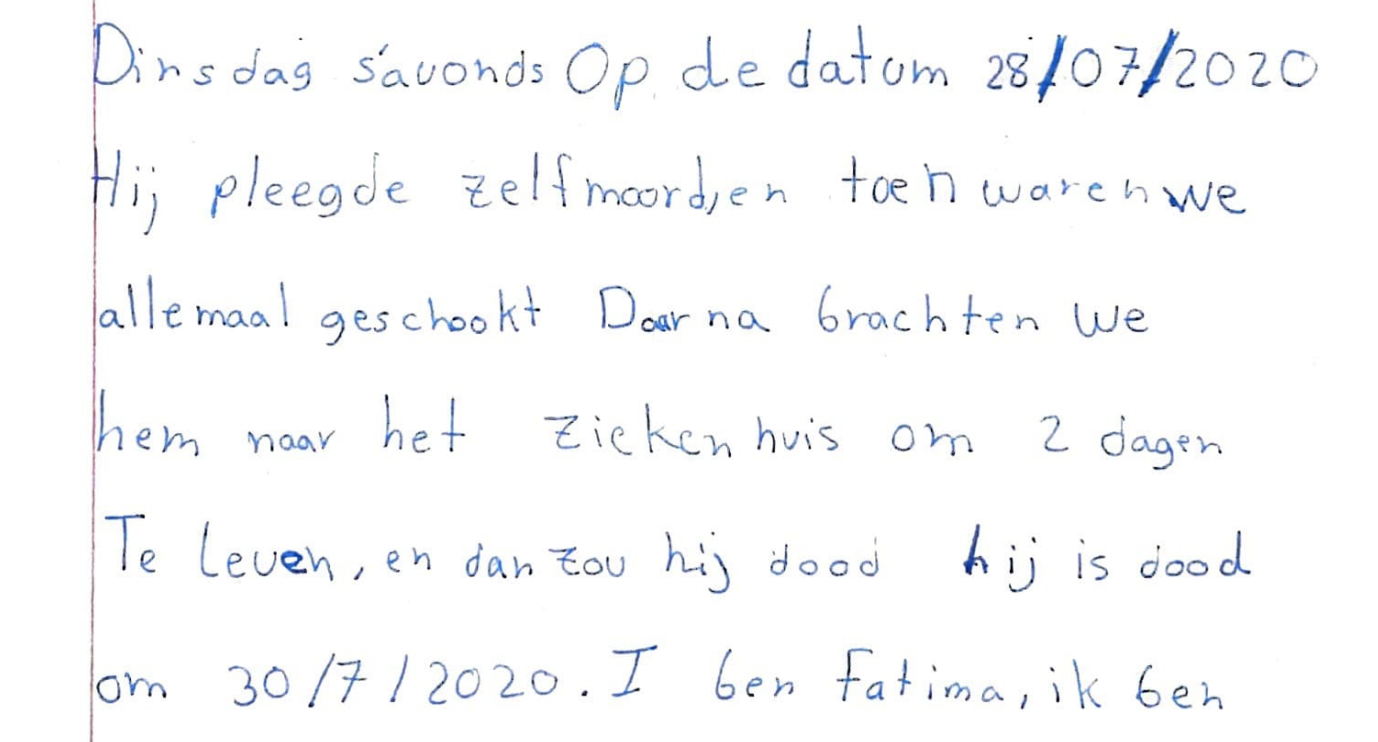 Dinsdag s'avonds Op de datum 28/07/2020
Hij pleegde zelfmoord, en toen waren we
allemaal geschookt Daarna brachten we
hem naar het ziekenhuis om 2 dagen
Te leven, en dan zou hij dood hij is dood
om 30/7/2020. I ben Fatima, ik ben